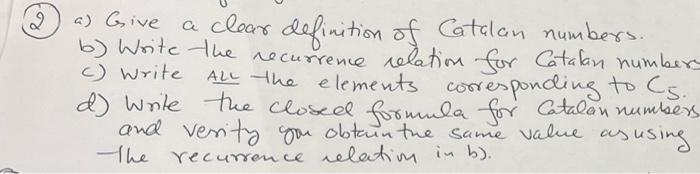 2 a) Give a clear definition of Catalan numbers.
b) Write the recurrence relation for Catalan numbers
c) Write ALL the elements corresponding to C5.
d) Write the closed formula for Catalan numbers
and verify you obtain the same value as using
the recurrence relation in b).